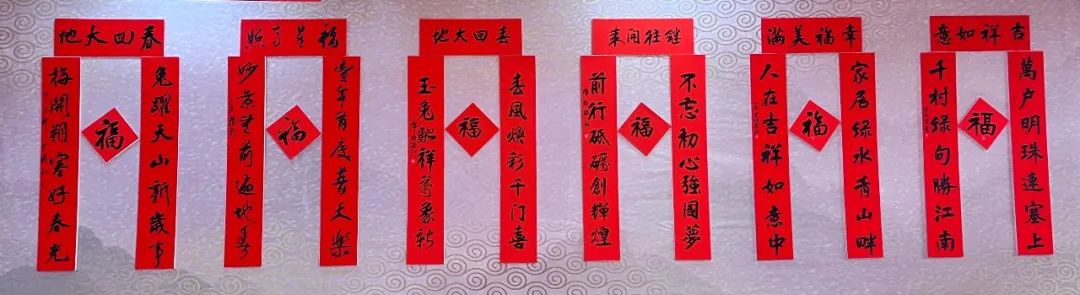 春回大地
兔曜天山新歲事
梅開朔塞好春光
福
福星高照
豐年有度普天樂
妙景無前遍地春
福
春回大地
春風焕彩千门喜
玉兔馳祥萬象新
福
继往開来
不忘初心強國夢
前行砥礪創輝煌
福
幸福美满
家居绿水青山畔
人在吉祥如意中
福
吉祥如意
萬户明珠連塞上
千村绿句勝江南
福